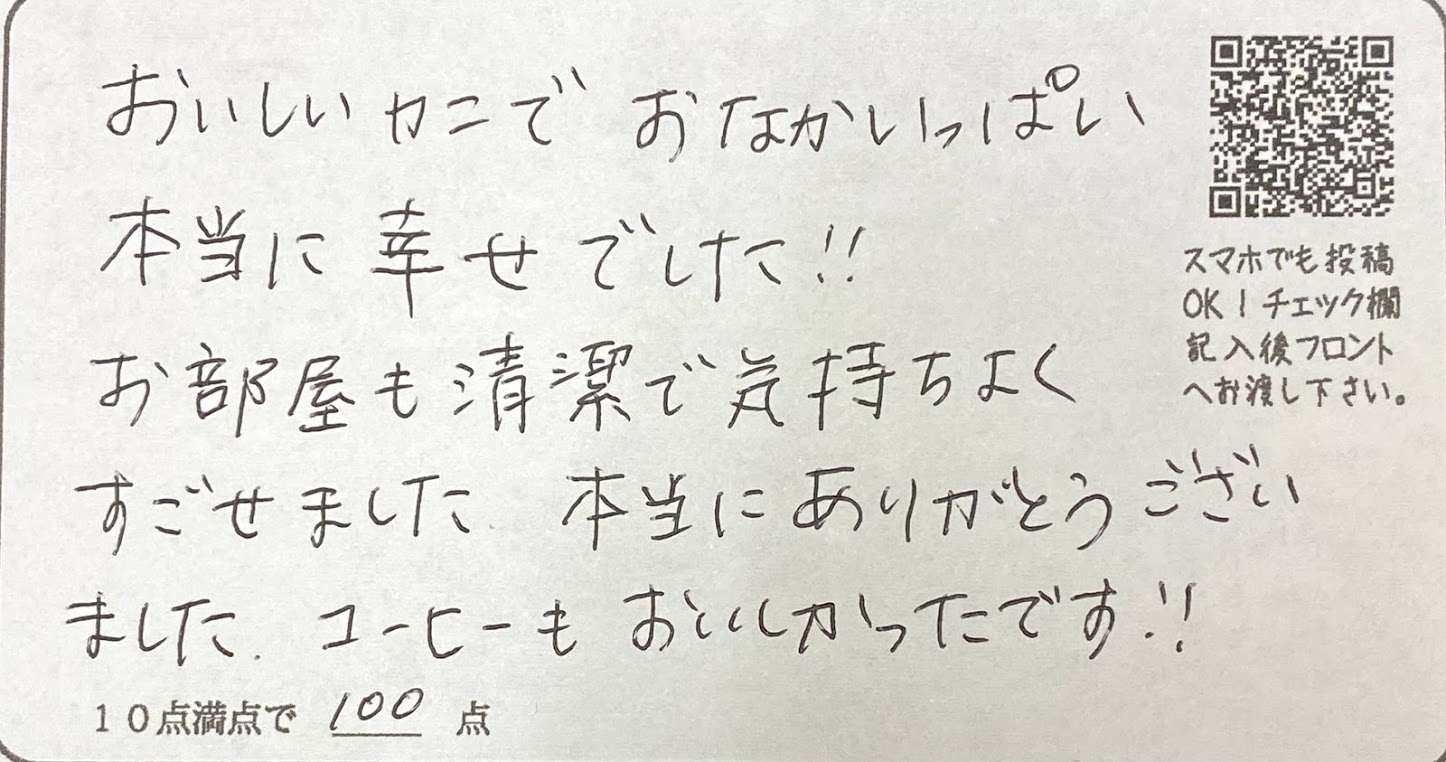 おいしいカニで おなかいっぱい
本当に 幸せでした!!
お部屋も清潔で気持ちよく
すごせました 本当にありがとうござい
ました. コーヒーも おいしかったです!!
10点満点で 100 点
スマホでも投稿
OK!チェック欄
記入後フロント
へお渡し下さい。